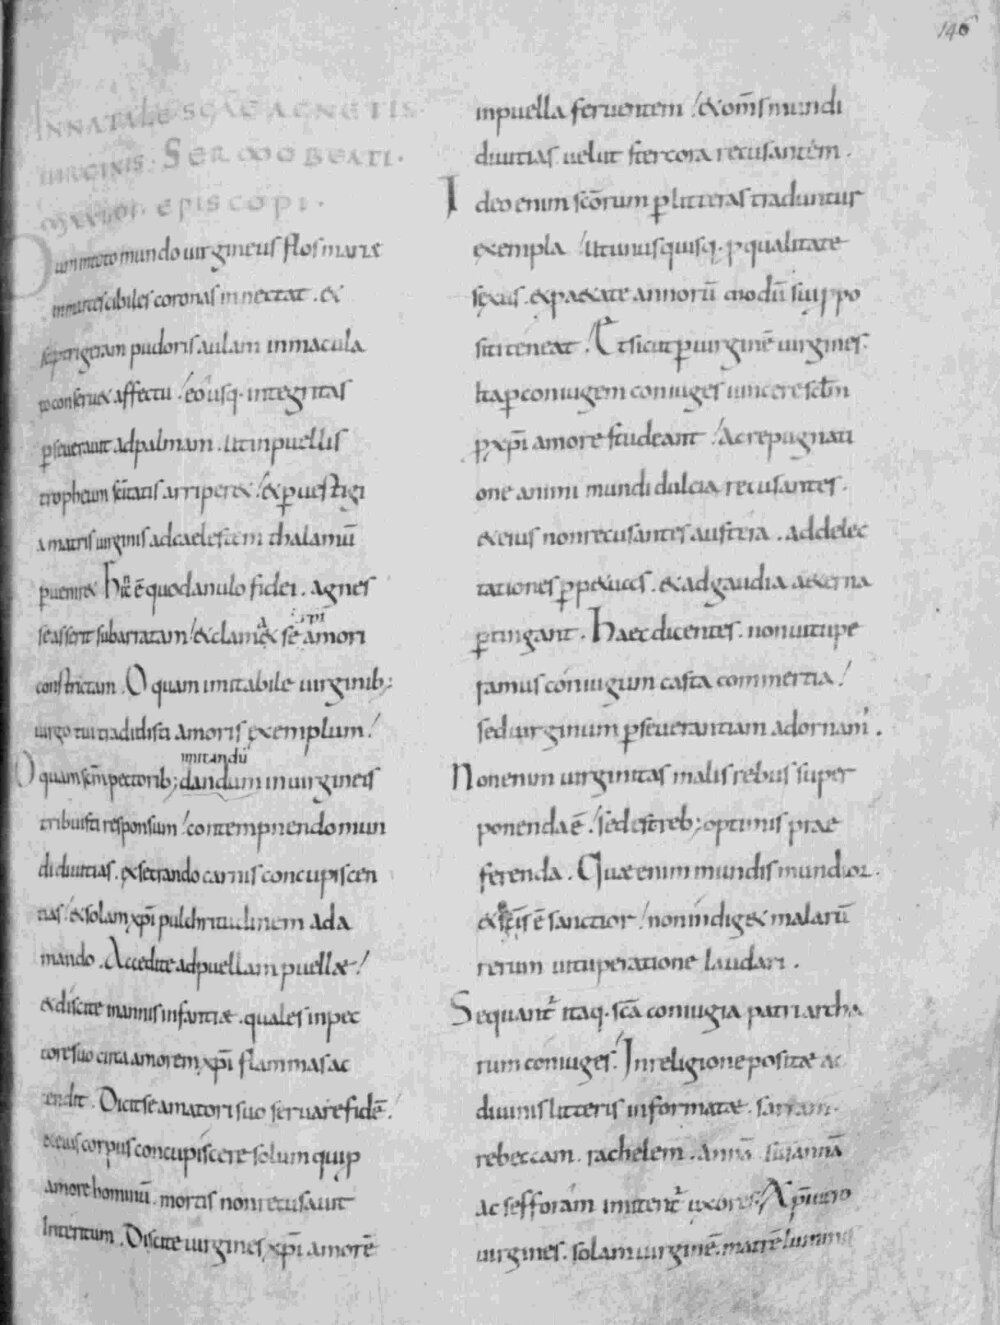 146
IN NATALE SCAE AGNETIS
VIRGINIS. SERMO BEATI.
MAXIMI. EPISCOPI.
Dum in toto mundo uirgineus flos mariae
inmarcescibiles coronas innectat. &
septigeram pudoris aulam inmacula
to conseru& affectu. eo usq. integritas
pseuerauit ad palmam. ut in puellis
tropheum scitatis arriper&. & p uestigi
a matris uirginis ad caelestem thalamū
pueniret. Hinc ē quod anulo fidei. agnes
se asserit subarratam. & clamat se xpi amori
constrictam. O quam imitabile uirginib;
uirgo tui tradidisti amoris exemplum.
O quam scm pectorib; imitandū dandum in uirgineis
tribuisti responsum. contempnendo mun
di diuitias. exsecrando carnis concupiscen
tias. & solam xpi pulchritudinem ada
mando. Accedite ad puellam puellae.
& discite in annis infantiae. quales in pec
tore suo circa amorem xpi flammas ac
cendit. Dicit se amatori suo seruare fidē.
& eius corpus concupiscere solum qui p
amore hominū. mortis non recusauit
Interitum. Discite uirgines xpi amorē
in puella feruentem. & oms mundi
diuitias uelut stercora recusantem.
Ideo enim scorum p litteras traduntur
exempla. ut unusquisq. p qualitate
sexus. exparate annorū modū sui ppo
siti teneat. Et sicut p uirginē uirgines.
Ita p coniugem coniuges uincere sclm
p xpi amore studeant. Ac repugnati
one animi mundi dulcia recusantes.
& eius non recusantes austera. ad delec
tationes pp&uas. & ad gaudia a&erna
ptingant. Haec dicentes. non uitupe
ramus coniugum casta commertia.
sed uirginum pseuerantiam adornam.
Non enim uirginitas malis rebus super
ponenda ē. sed est reb; optimis prae
ferenda. Quae enim mundis mundior.
& scis ē sanctior. non indig& malarū
rerum uituperatione laudari.
Sequant itaq. sca coniugia patriarcha
rum coniuges. In religione positae ac
diuinis litteris informatae. sarram.
rebeccam. rachelem. annā. susannā
ac sefforam imitent uxores. Ap uero
uirgines. solam uirginē. matrē luminis